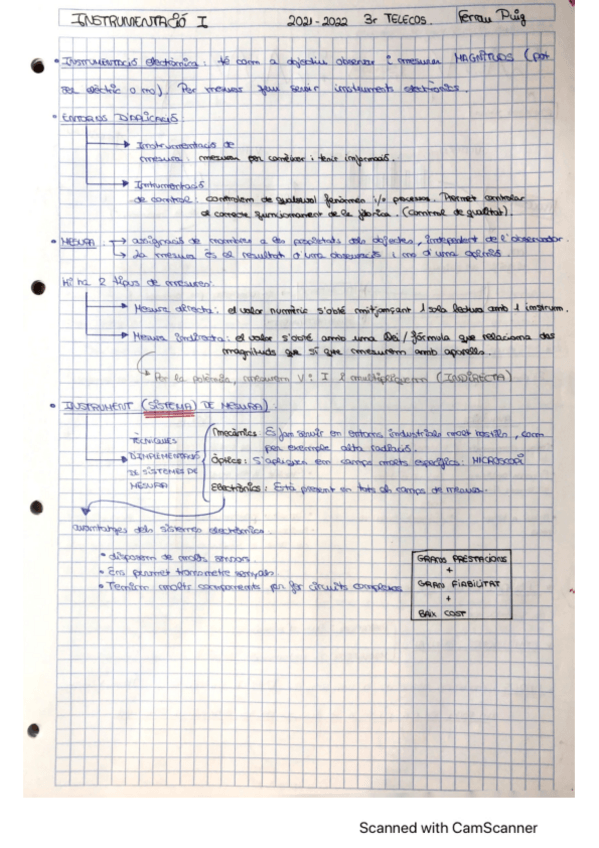 INSTRUMENTACIÓ I 2021-2022 3r TELECOS. Ferran Puig
• INSTRUMENTACIÓ electrònica: té com a objectiu observar i mesurar MAGNITUDS (pot
ser elèctric o no). Per mesurar fem servir instruments electrònics.
• ENTORNS D'APLICACIÓ:
Instrumentació de
mesura: mesurem per conèixer i tenir informació.
Intrumentació
de control: controlem de qualsevol fenòmen i/o processos. Permet controlar
el correcte funcionament de la fàbrica. (Control de qualitat).
• MESURA: → assignació de nombres a les propietats dels objectes, independent de l'observador.
↳ La mesura és el resultat d'una observació i no d'una opinió.
Hi ha 2 tipus de mesures:
Mesura directa: el valor numèric s'obté mitjançant 1 sola lectura amb 1 instrum.
Mesura Indirecta: el valor s'obté amb una llei/fórmula que relaciona les
magnituds que sí que mesurem amb aparells.
Per la potència, mesurem V i I i multipliquem (INDIRECTA)
• INSTRUMENT (SISTEMA DE MESURA).
TÈCNIQUES
D'IMPLEMENTACIÓ
DE SISTEMES DE
MESURA
Mecànics: Es fan servir en entorns industrials molt hostils, com
per exemple alta radiació.
Òptics: S'apliquen en camps molts específics: MICROSCOPI
Electrònics: Està present en tots els camps de mesura.
avantatges dels sistemes electrònics.
• disposem de molts sensors
• Ens permet transmetre senyals
• Tenim molts components per fer circuits complexos
GRANS PRESTACIONS
+
GRAN FIABILITAT
+
BAIX COST
Scanned with CamScanner